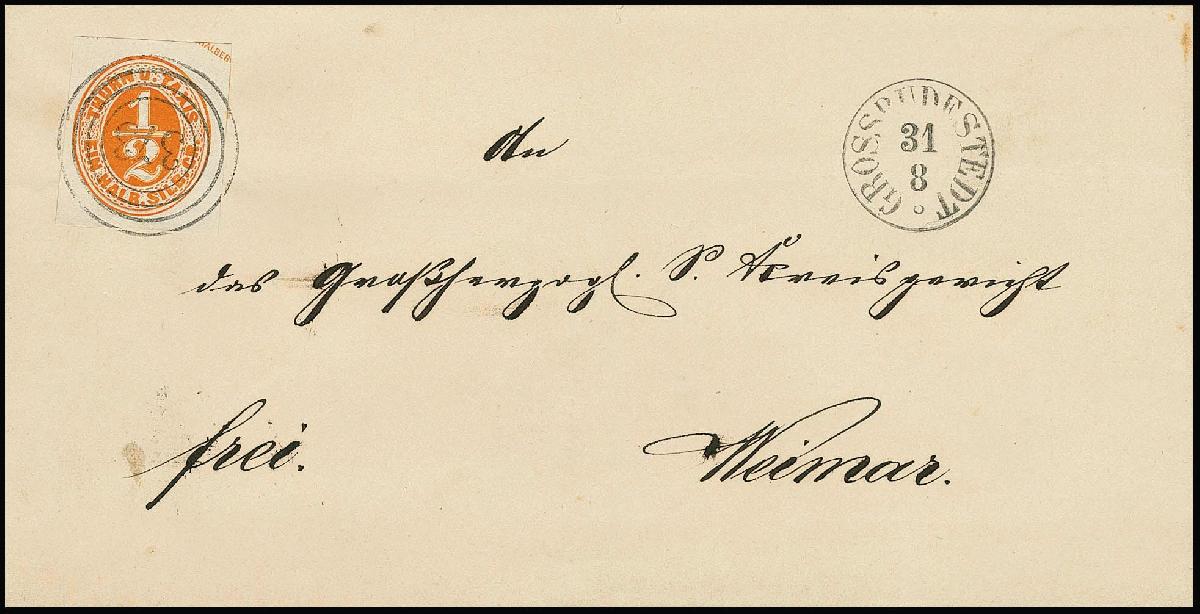 THURN U. TAXIS
1/2
EIN HALB. SILB.
HALBE
GROSSRUDESTEDT
31
8
An
das Großherzogl. S. Kreisgericht
frei.
Weimar.